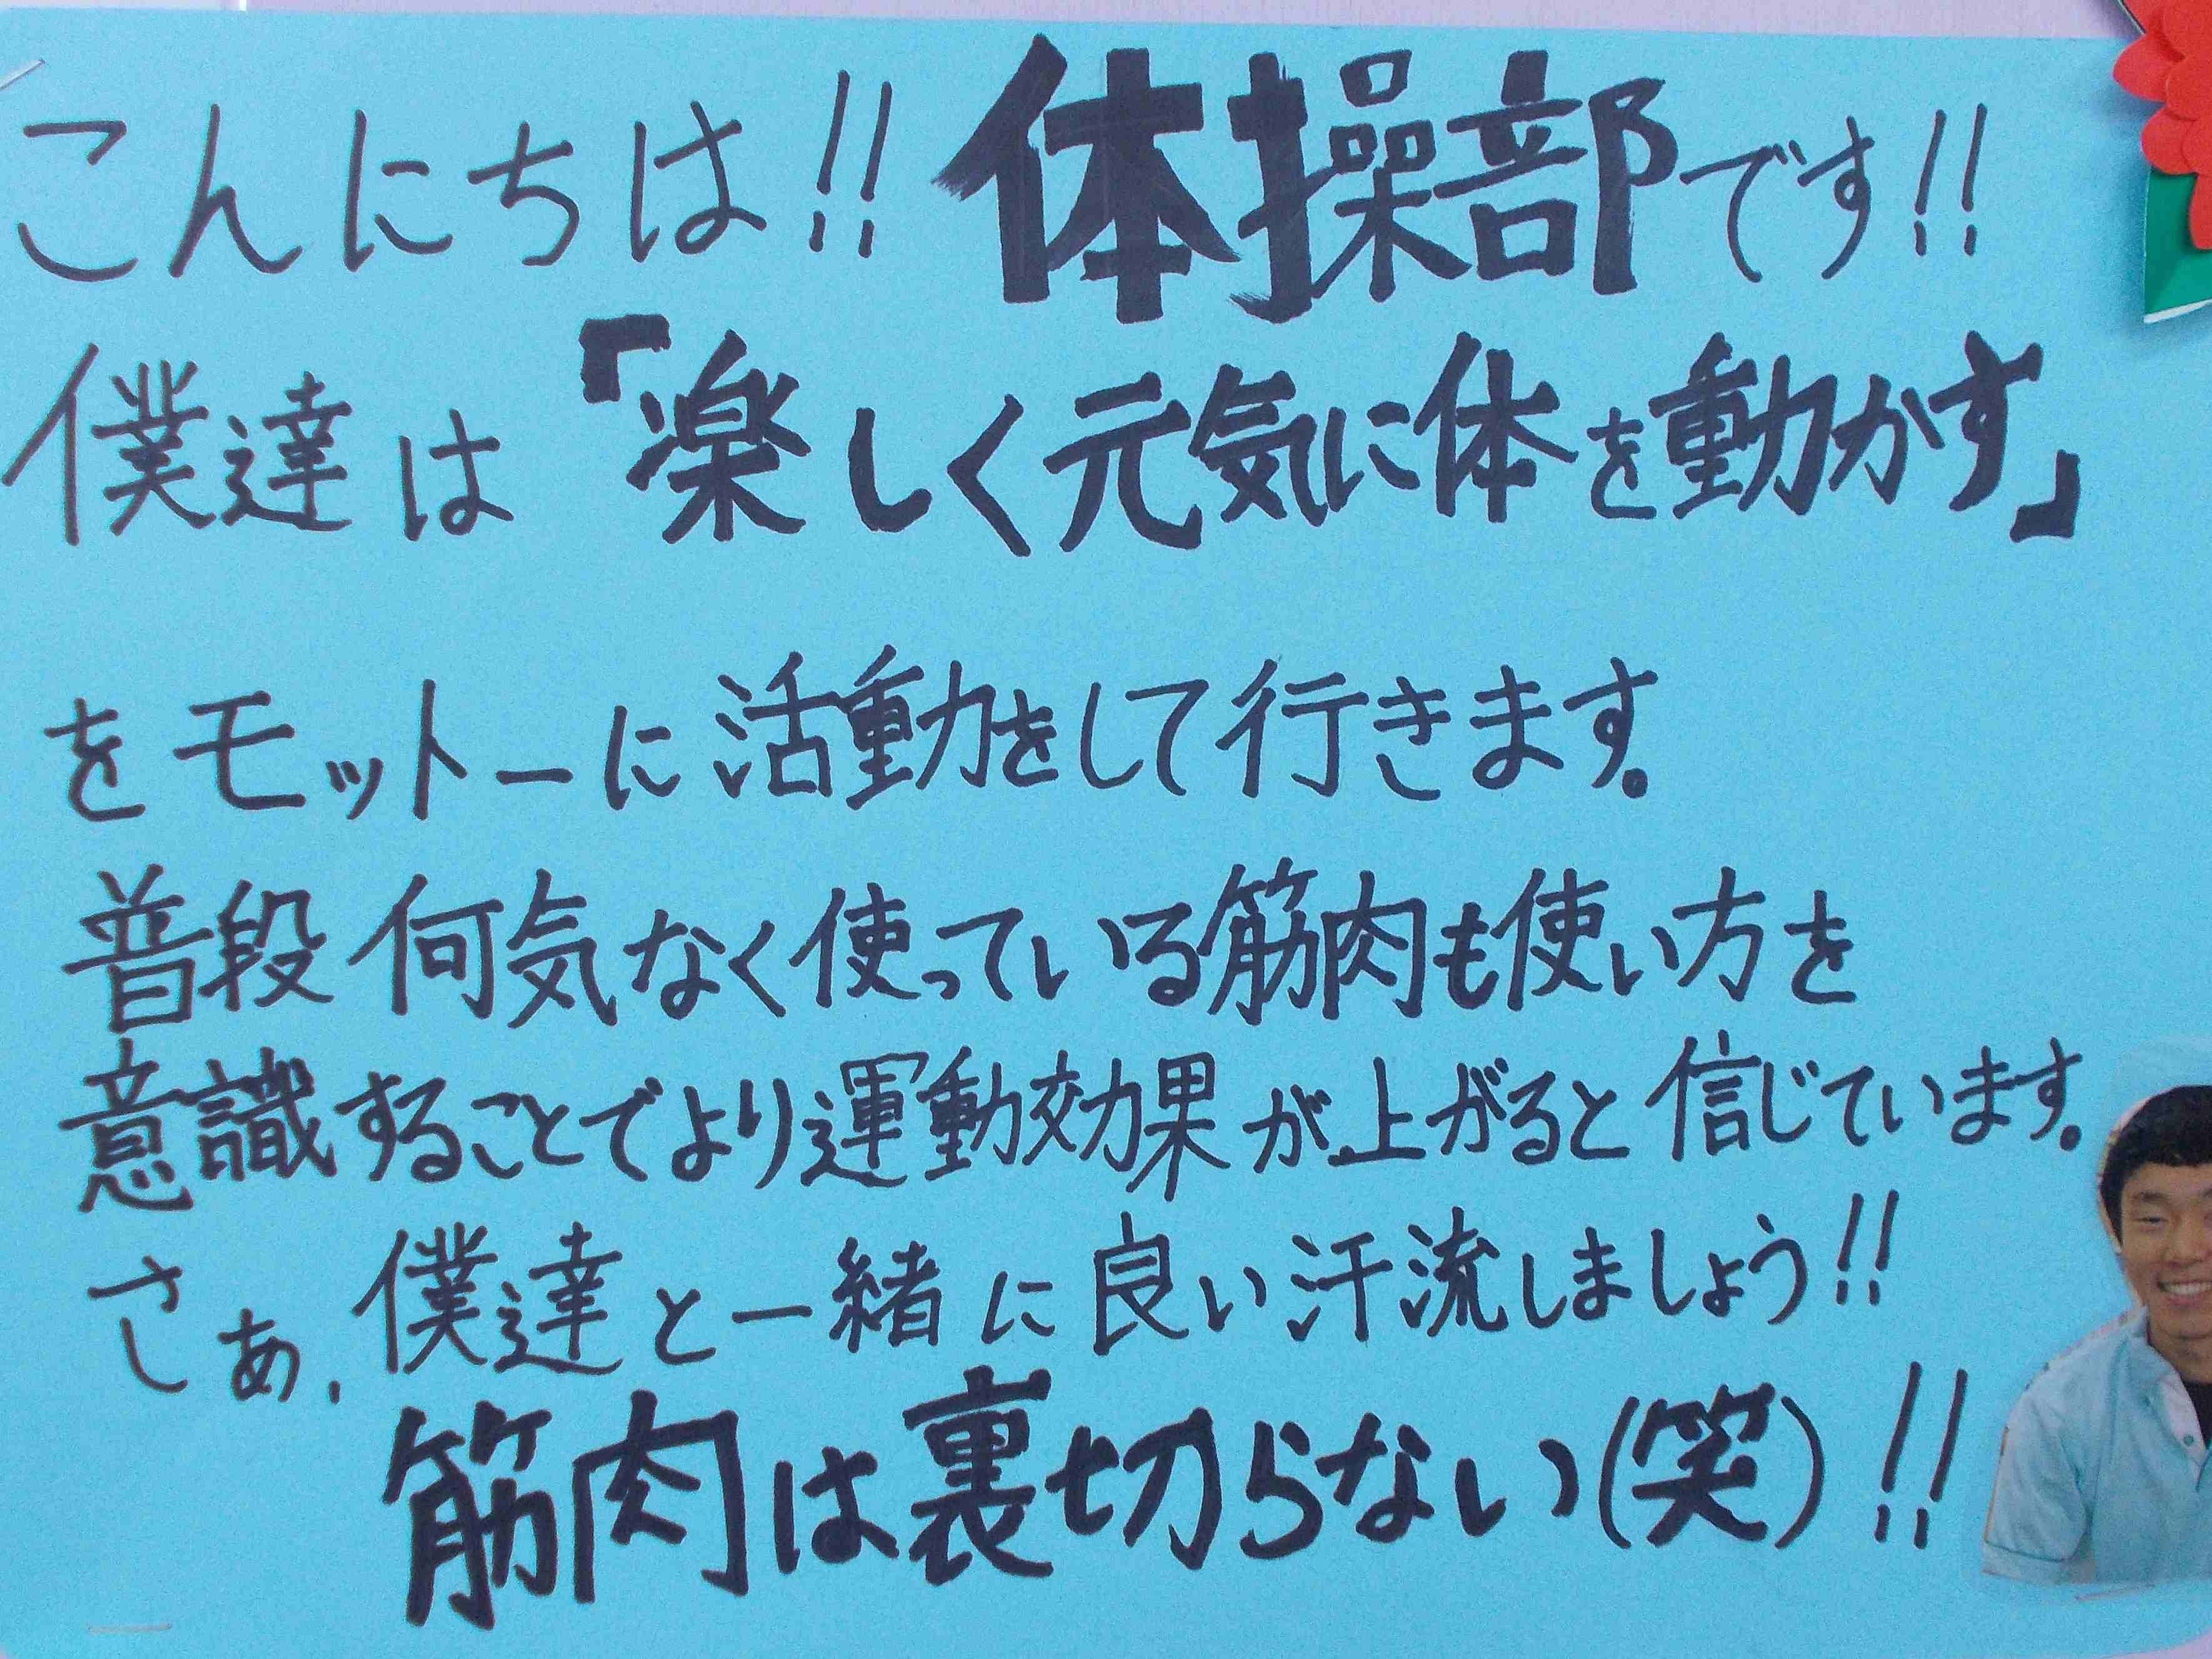 こんにちは!! 体操部です!!
僕達は『楽しく元気に体を動かす』
をモットーに活動をして行きます。
普段何気なく使っている筋肉も使い方を
意識することでより運動効果が上がると信じています。
さぁ、僕達と一緒に良い汗流しましょう!!
筋肉は裏切らない(笑)!!